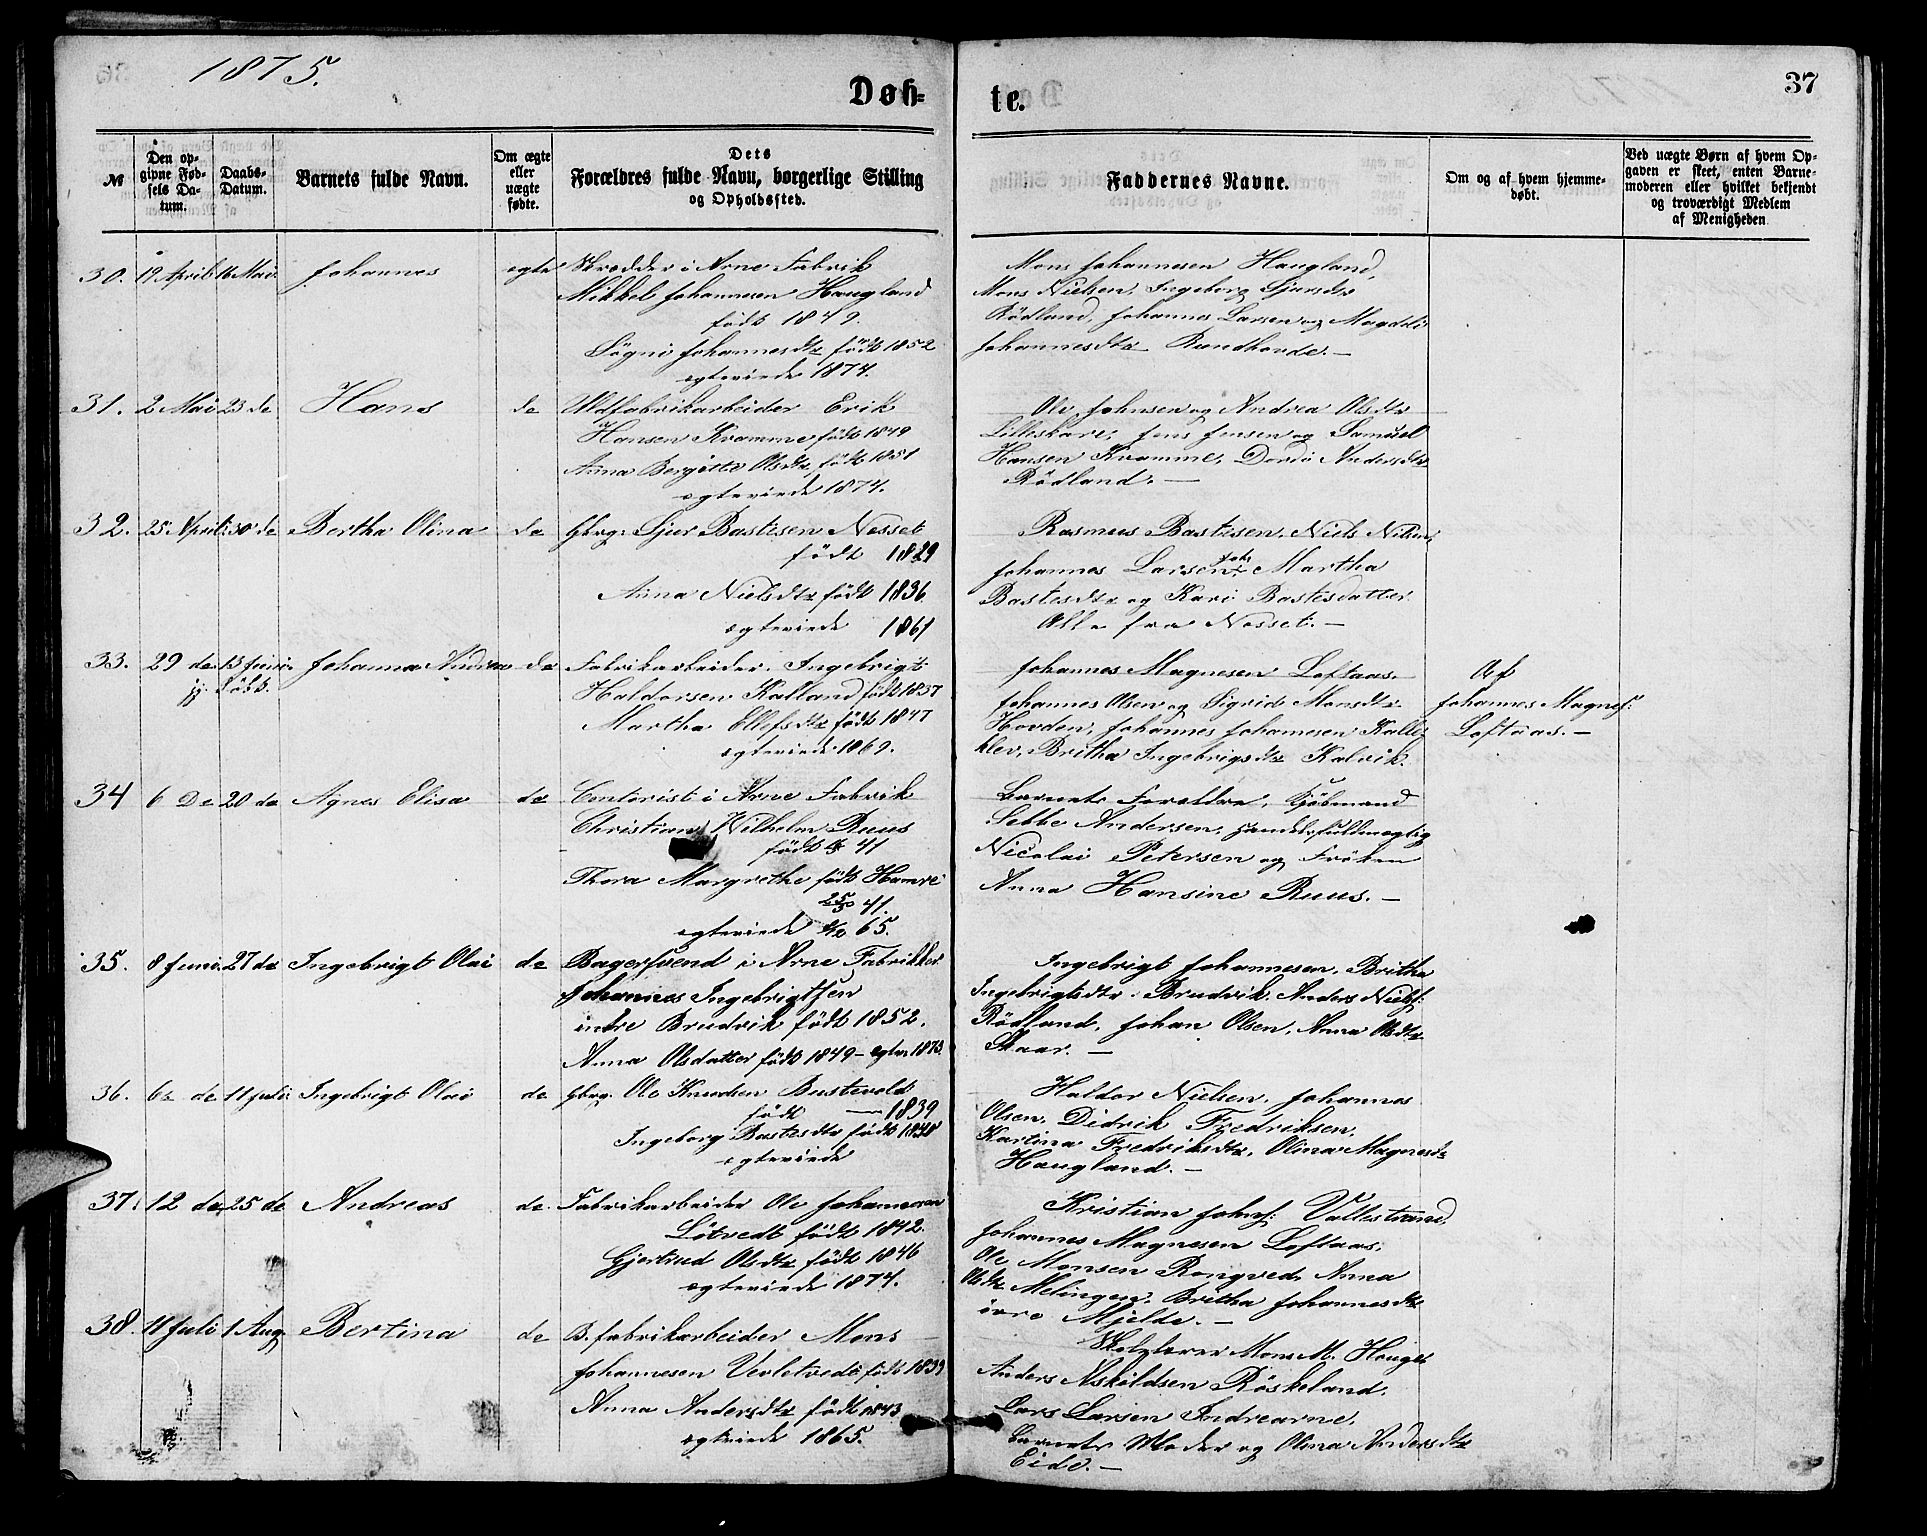 1875.
Døb-
te.
37
№
Den op-
givne Fød-
sels Da-
tum.
Daabs-
Datum.
Barnets fulde Navn.
Om ægte
eller
uægte
fødte.
Dets
Forældres fulde Navn, borgerlige Stilling
og Opholdssted.
Faddernes Navne.
Om og af hvem hjemme-
døbt.
Ved uægte Børn af hvem Op-
gaven er skeet, enten Barne-
moderen eller hvilket bekjendt
og troværdigt Medlem
af Menigheden
30. 19 April 16 Mai Johannes ægte Skrædder i Arne Fabrik
Mikkel Johannesen Haugland
født 1849.
Søgni Johannesdtr født 1852
egteviede 1874.
Mons Johannesen Haugland,
Mons Nielsen, Ingeborg Sjursdtr
Rødland, Johannes Larsen og Magdeli
Johannesdtr Rundhovde. —
31. 2 Mai 23 de Hans de Uldfabrikarbeider Erik
Hansen Kramme født 1849
Anna Bergitte Olsdtr, født 1851
egteviede 1874.
Ole Johnsen og Andrea Olsdtr
Lilleskare, Jens Jensen og Samuel
Hansen Kramme, Dordi Andersdtr
Rødland. —
32. 25 April 30 de Bertha Olina de Gbrg. Sjur Bastesen Nesset
født 1829
Anna Nielsdtr født 1836
egteviede 1861
Rasmus Bastesen, Niels Nilsen,
Johannes Larsen, Martha
Bastesdtr og Kari Bastesdatter
Alle fra Nesset. —
33. 29 de 13 Juni Johanna Andrea de Fabrikarbeider, Ingebrigt
hj. døbt.
Haldorsen Kalland født 1837
Martha Ellefsdtr født 1847
egteviede 1869.
Johannes Magnesen Loftaas.
Johannes Olsen og Sigrid Monsdtr
Hovden, Johannes Johannesen Kalle-
klev, Britha Ingebrigsdtr Kalvik.
Af
Johannes Magnes:
Loftaas. —
34 6 De 20 de Agnes Elisa de Contorist i Arne Fabrik
Christian Wilhelm Ruus
født 41
Thora Margrethe født Hamre
25/3 41.
egteviede 65.
Barnets Forældre, Kjøbmand
Sebbe Andersen, Handelsfuldmegtig
Nicolai Petersen og Frøken
Anna Hansine Ruus. —
35. 8 Juni 27 de Ingebrigt Olai de Bagersvend i Arne Fabrikker
Johannes Ingebrigtsen
indre Brudvik født 1852.
Anna Olsdatter født 1849 — egtev 1873.
Ingebrigt Johannesen, Britha
Ingebrigtsdtr Brudvik, Anders Niels:
Rødland, Johan Olsen, Anna Olsdtr
Skaar. —
36. 6 de 11 Juli Ingebrigt Olai de Gbrg. Ole Knudsen Bustevold
født — 1839
Ingeborg Bastesdtr født 1838
egteviede
Haldor Nielsen, Johannes
Olsen, Didrik Fredriksen,
Kartina Fredriksdtr, Olina Magnesdtr
Haugland. —
37. 12 de 25 de Andreas de Fabrikarbeider Ole Johannesen
Løtvedt født 1842.
Gjertrud Olsdtr født 1846
egteviede 1874.
Kristian Johns: Vallestrand,
Johannes Magnesen Loftaas,
Ole Monsen Rongved, Anna
Olsdtr Melingen, Britha Johannesdtr
øvre Mjelde. —
38. 11 Juli 1 Aug. Bertina de B. fabrikarbeider Mons
Johannesen Vevletvedt født 1839
Anna Andersdtr født 1843
egteviede 1865.
Skolelærer Mons M. Hauge
Anders Askildsen Røskeland,
Lars Larsen Indrearne,
Barnets Moder og Olina Andersdtr
Eide. —